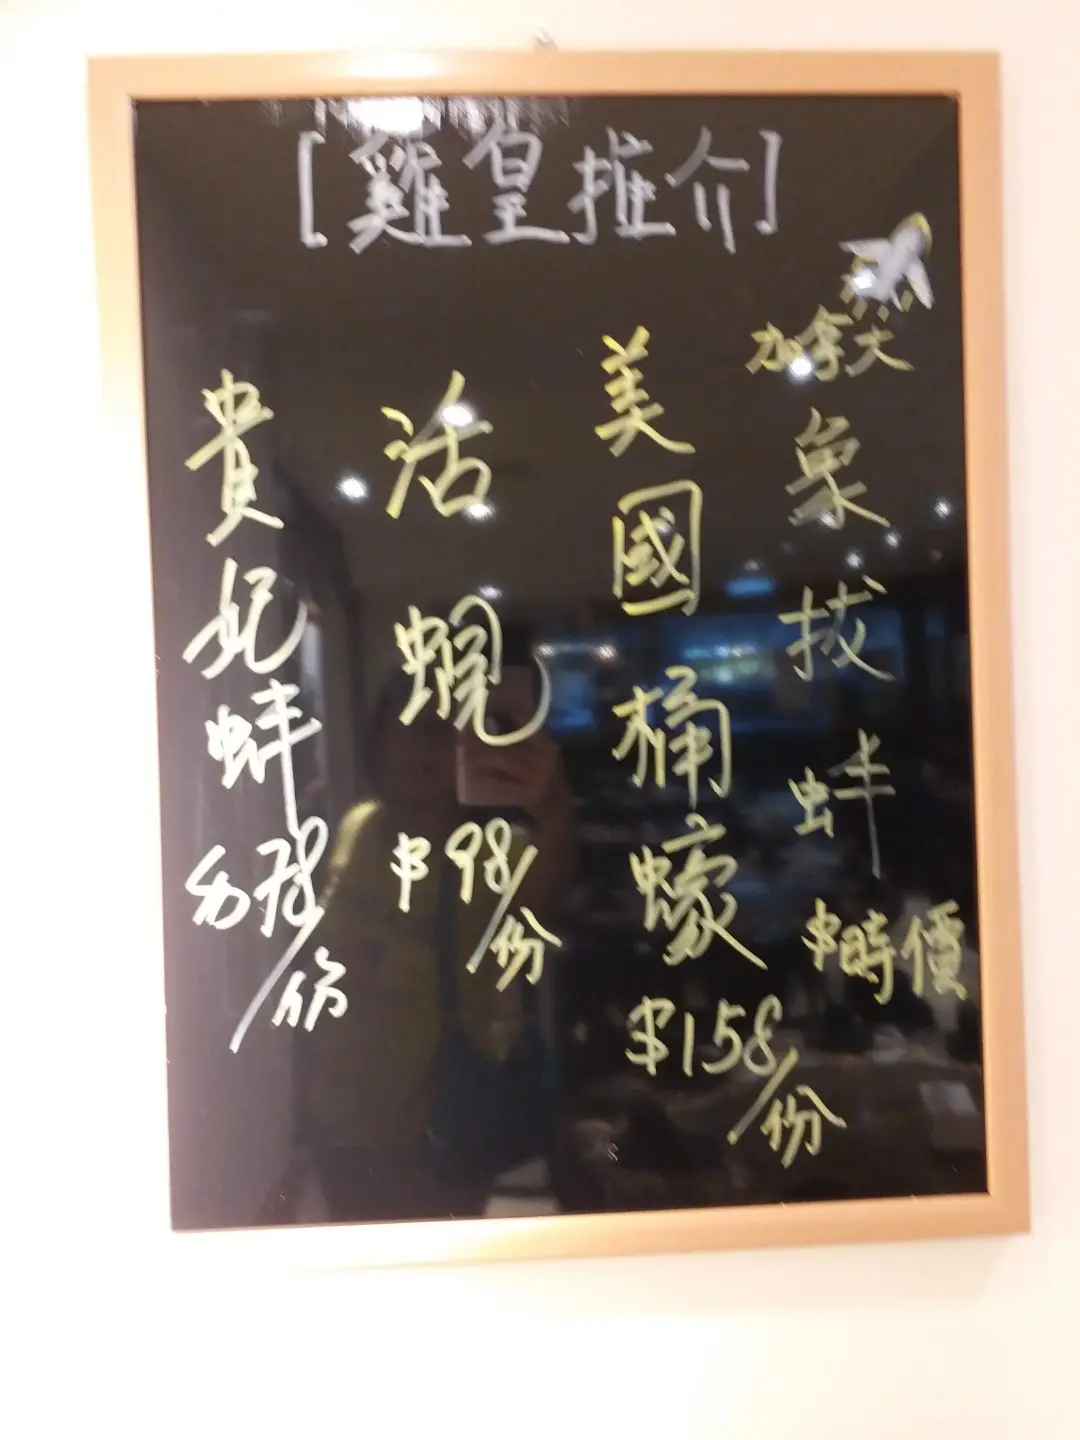 [雞皇推介]
加拿大
象拔蚌
$時價
美國桶蠔
$158/份
活蜆
$98/份
貴妃蚌
/份